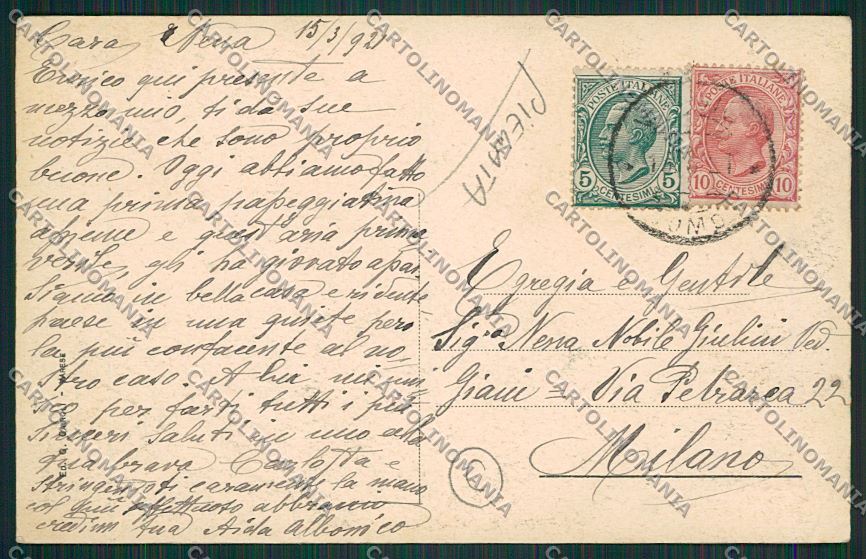 Cara Nessa 15/3/921
Enrico qui presente a
mezzo mio, ti da sue
notizie che sono proprio
buone. Oggi abbiamo fatto
una prima passeggiatina
assieme e quest'aria prima
verile, gli ha giovato apar.
Siamo in bella casa e ridente
paese in una quiete però
la più confacente al no-
stro caso. A lui mi uni-
sco per farti tutti i più
sinceri saluti in uno alla
tua brava Carlotta e
stringendoti caramente la mano
col più affettuoso abbraccio
credimi tua Aida Albonico
PIERATA
POSTE ITALIANE
5 CENTESIMI 5
POSTE ITALIANE
10 CENTESIMI 10
Egregia e Gentile
Sig.ra Nessa Nobile Giulini Ved.
Giani = Via Petrarca 22
Milano
ED. G. - VARESE
CARTOLINOMANIA